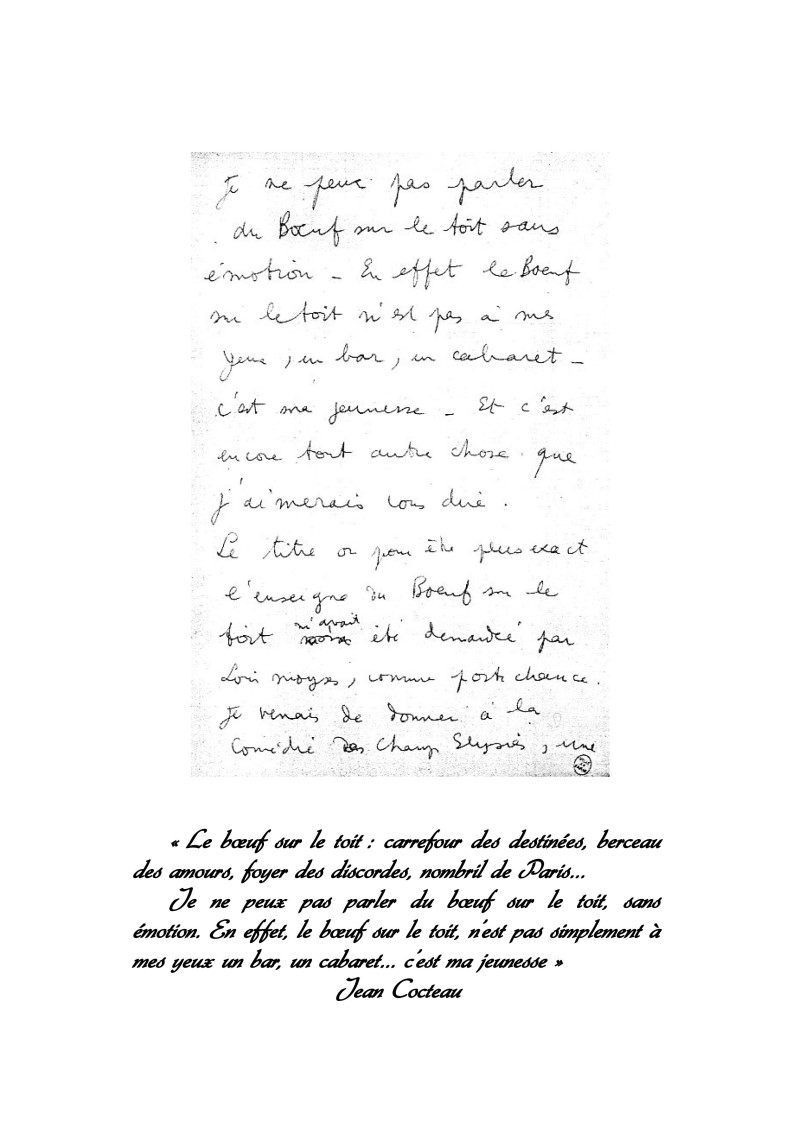 Je ne peux pas parler
du Bœuf sur le toit sans
émotion – En effet le Boeuf
sur le toit n'est pas à mes
yeux, un bar, un cabaret –
c'est ma jeunesse – Et c'est
encore tout autre chose que
j'aimerais vous dire.
Le titre ou pour être plus exact
l'enseigne du Boeuf sur le
m'avait
toit été demandé par
Louis moyses, comme porte chance.
Je venais de donner à la
Comédie des Champs Elysées, une
« Le bœuf sur le toit : carrefour des destinées, berceau
des amours, foyer des discordes, nombril de Paris...
Je ne peux pas parler du bœuf sur le toit, sans
émotion. En effet, le bœuf sur le toit, n'est pas simplement à
mes yeux un bar, un cabaret... c'est ma jeunesse »
Jean Cocteau